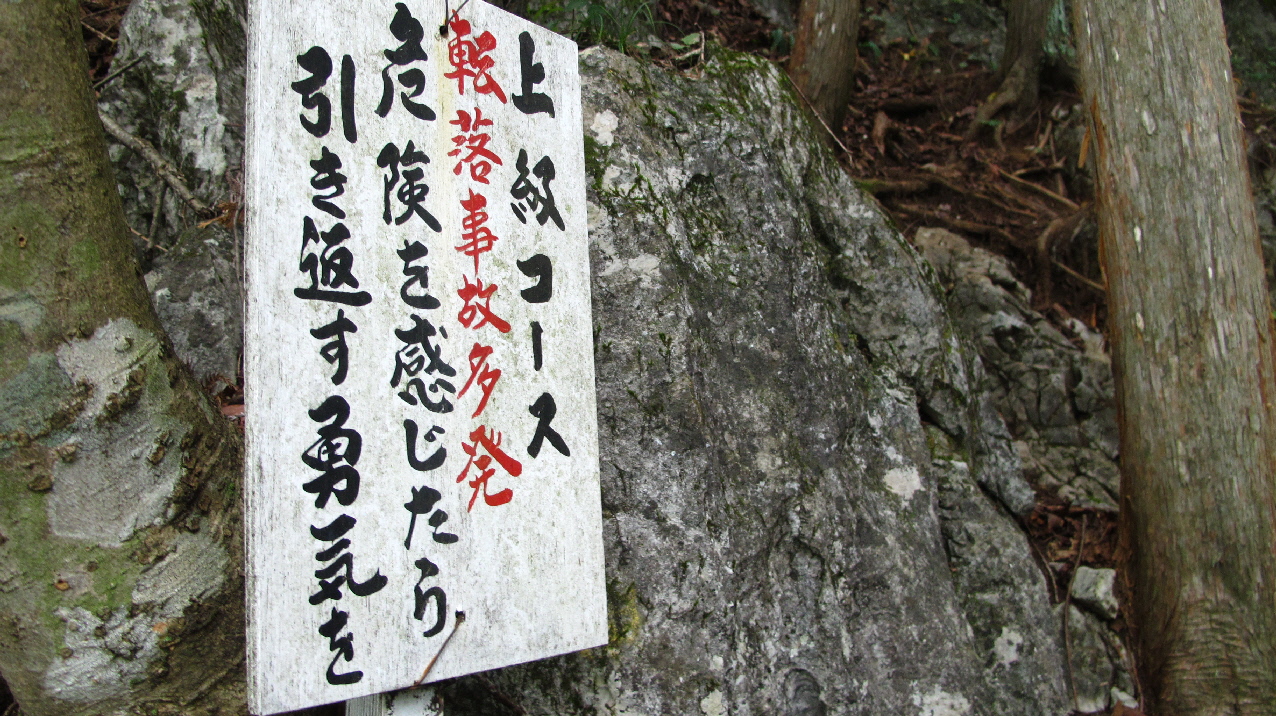 上級コース
転落事故多発
危険を感じたら
引き返す勇気を